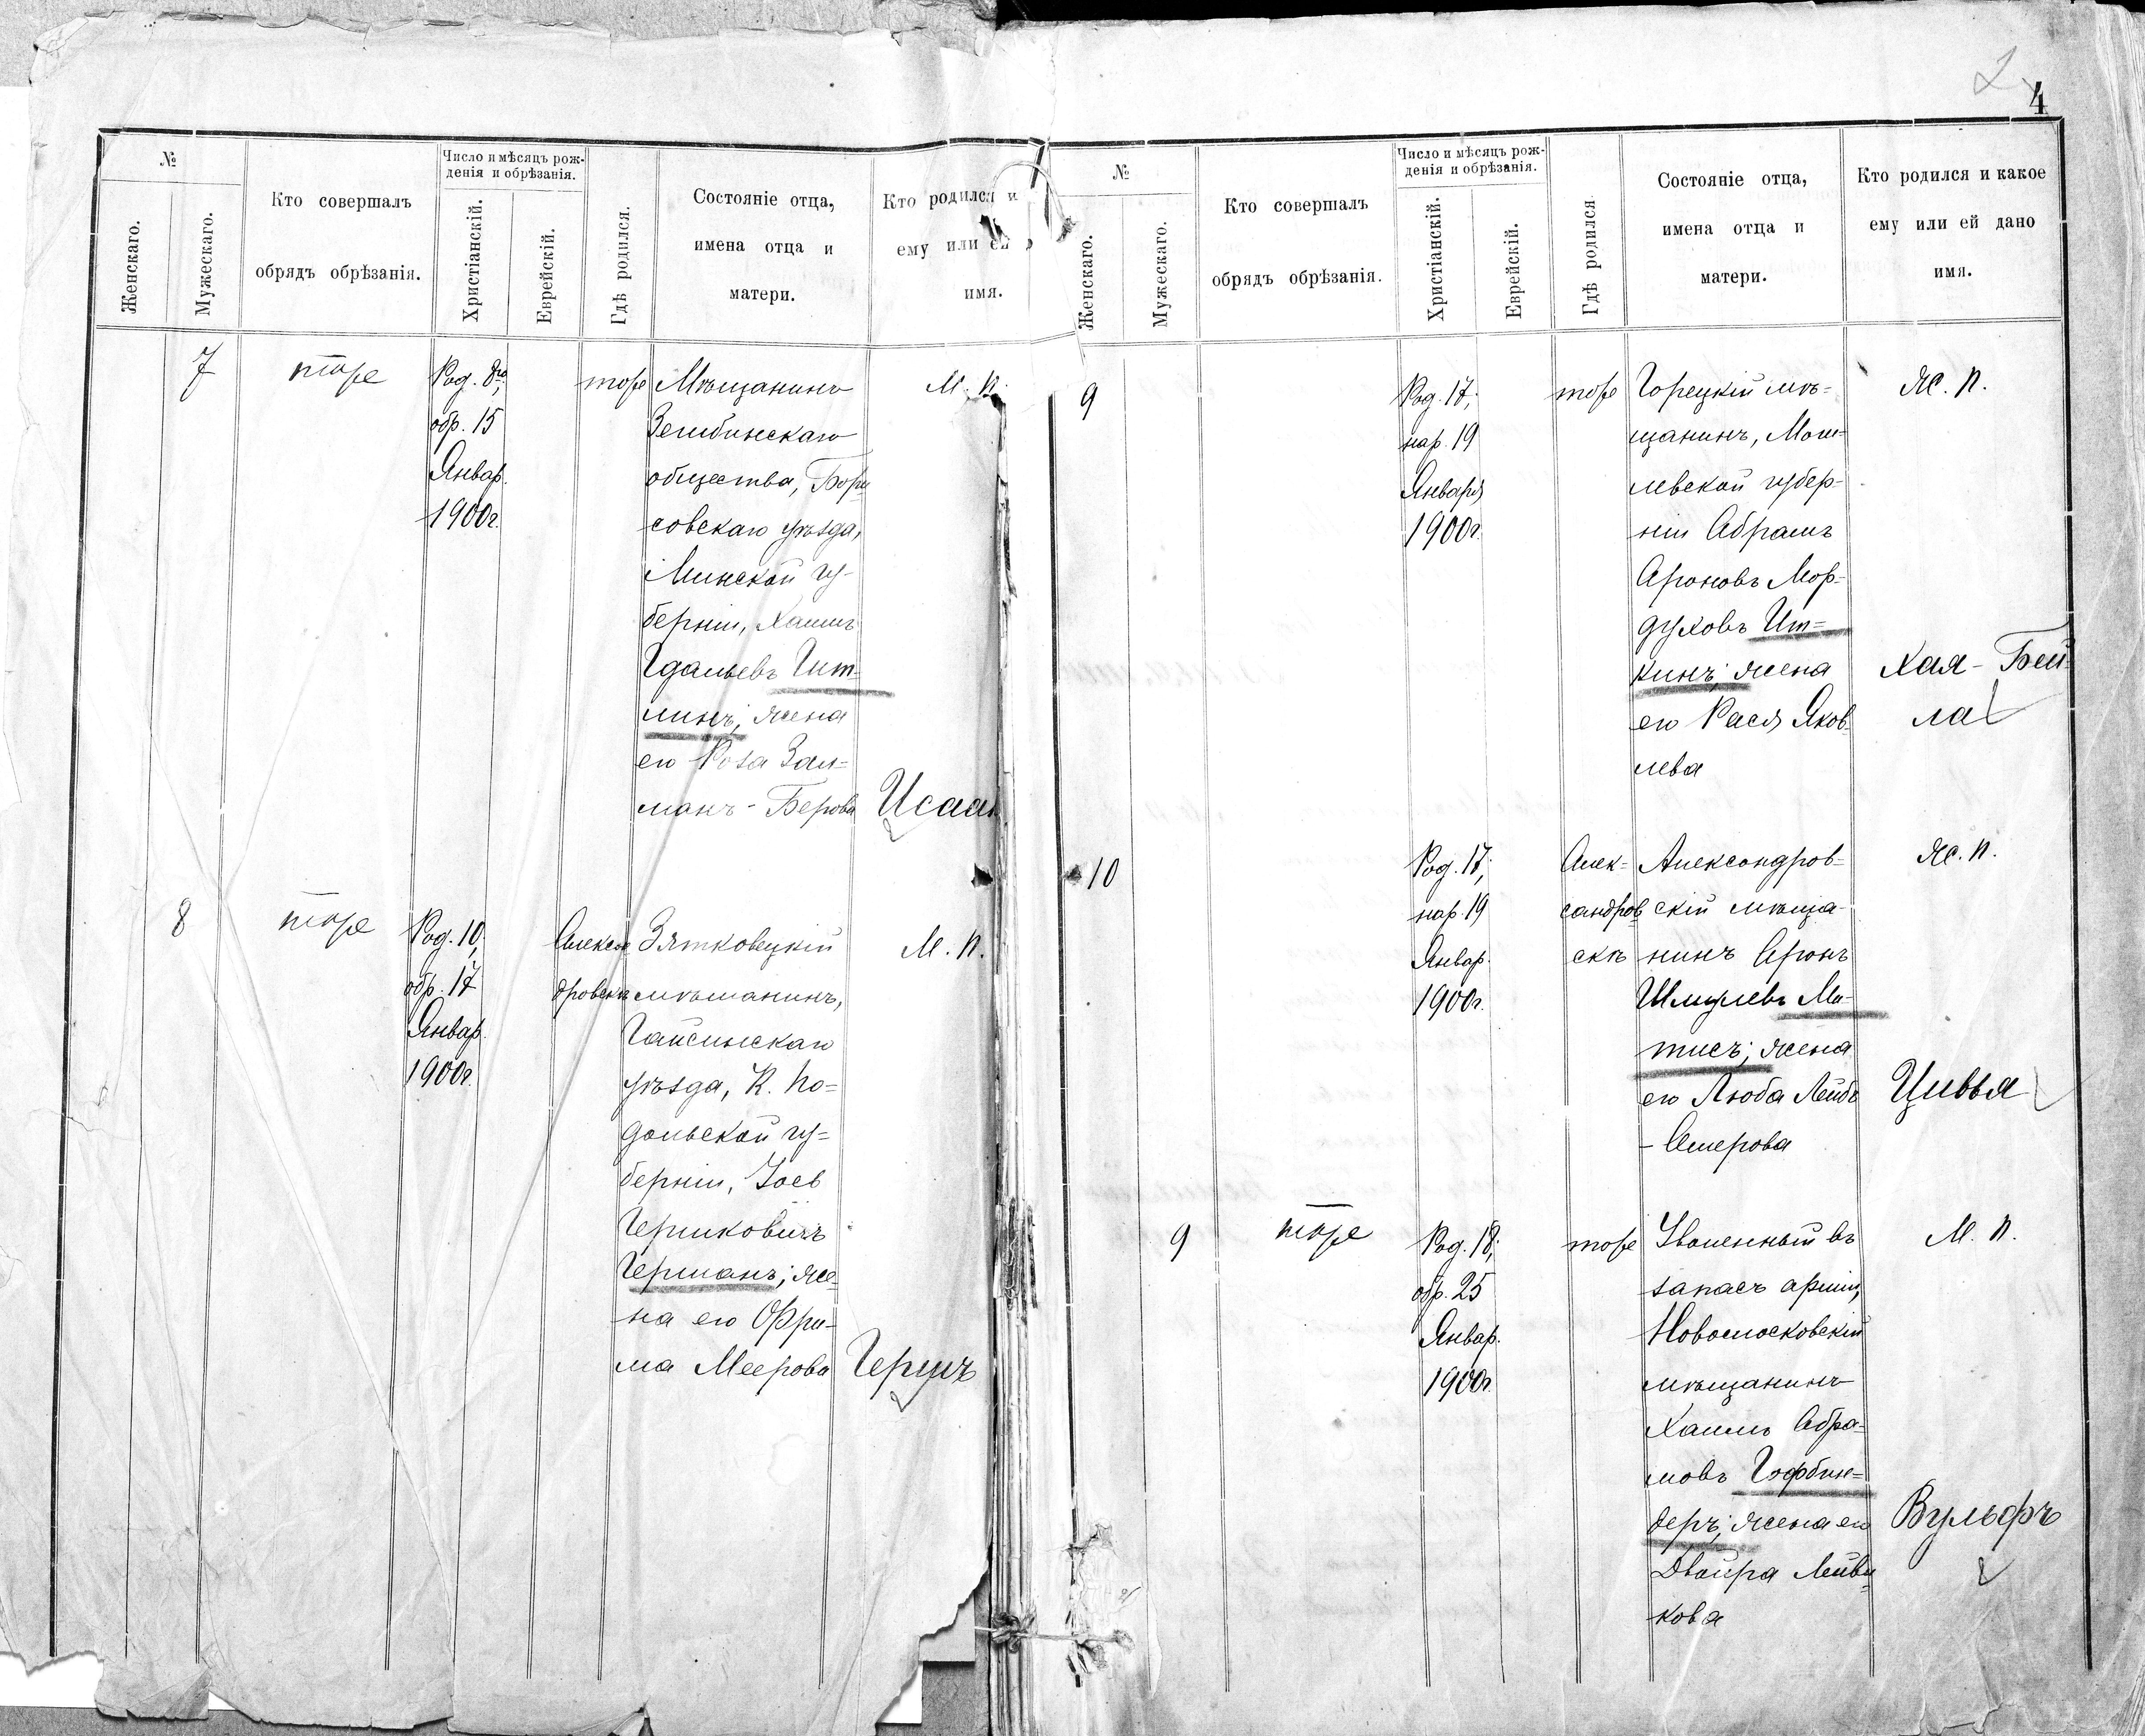 2
4
№
Женскаго.
Мужескаго.
Кто совершалъ
обрядъ обрѣзанія.
Число и мѣсяцъ рож-
денія и обрѣзанія.
Христіанскій.
Еврейскій.
Гдѣ родился.
Состояніе отца,
имена отца и
матери.
Кто родился и
ему или ей
имя.
7
тоже
Род. 8го,
обр. 15
Январ.
1900г.
тоже
Мѣщанинъ
Зембинскаго
общества, Бори
совскаго уѣзда,
Минской гу-
берніи, Хаимъ
Гдальевъ Гит-
линъ; жена
его Роза Зал=
манъ-Берова
М. п.
Исаакъ
8
тоже
Род. 10,
обр. 17
Январ.
1900г.
Алексан
дровскъ
Зятковецкій
мѣщанинъ,
Гайсинскаго
уѣзда, К. По=
дольской гу=
берніи, Зоев
Гершковичъ
Германъ; же-
на его Фри-
ма Меерова
М. п.
Гершъ
№
Женскаго.
Мужескаго.
Кто совершалъ
обрядъ обрѣзанія.
Число и мѣсяцъ рож-
денія и обрѣзанія.
Христіанскій.
Еврейскій.
Гдѣ родился.
Состояніе отца,
имена отца и
матери.
Кто родился и какое
ему или ей дано
имя.
9
Род. 17,
нар. 19
Января
1900г.
тоже
Горецкій мѣ=
щанинъ, Моги-
левской губер-
ніи Абрамъ
Ароновъ Мор-
духовъ Ит=
кинъ; жена
его Рася Яков
лева
Ж. п.
Хая-Бей
ла
10
Род. 17,
нар. 19
Январ.
1900г.
Алек=
сандров
скѣ
Александров=
скій мѣща-
нинъ Аронъ
Шмулевъ Ма-
тисъ; жена
его Люба Лейбъ
-Смерова
Ж. п.
Цивья
9
тоже
Род. 18,
обр. 25
Январ.
1900г.
тоже
Уволенный въ
запасъ арміи,
Новомосковскій
мѣщанинъ
Хаимъ Абра-
мовъ Гофбин=
деръ; жена его
Двойра Лейви
кова
М. п.
Вульфъ